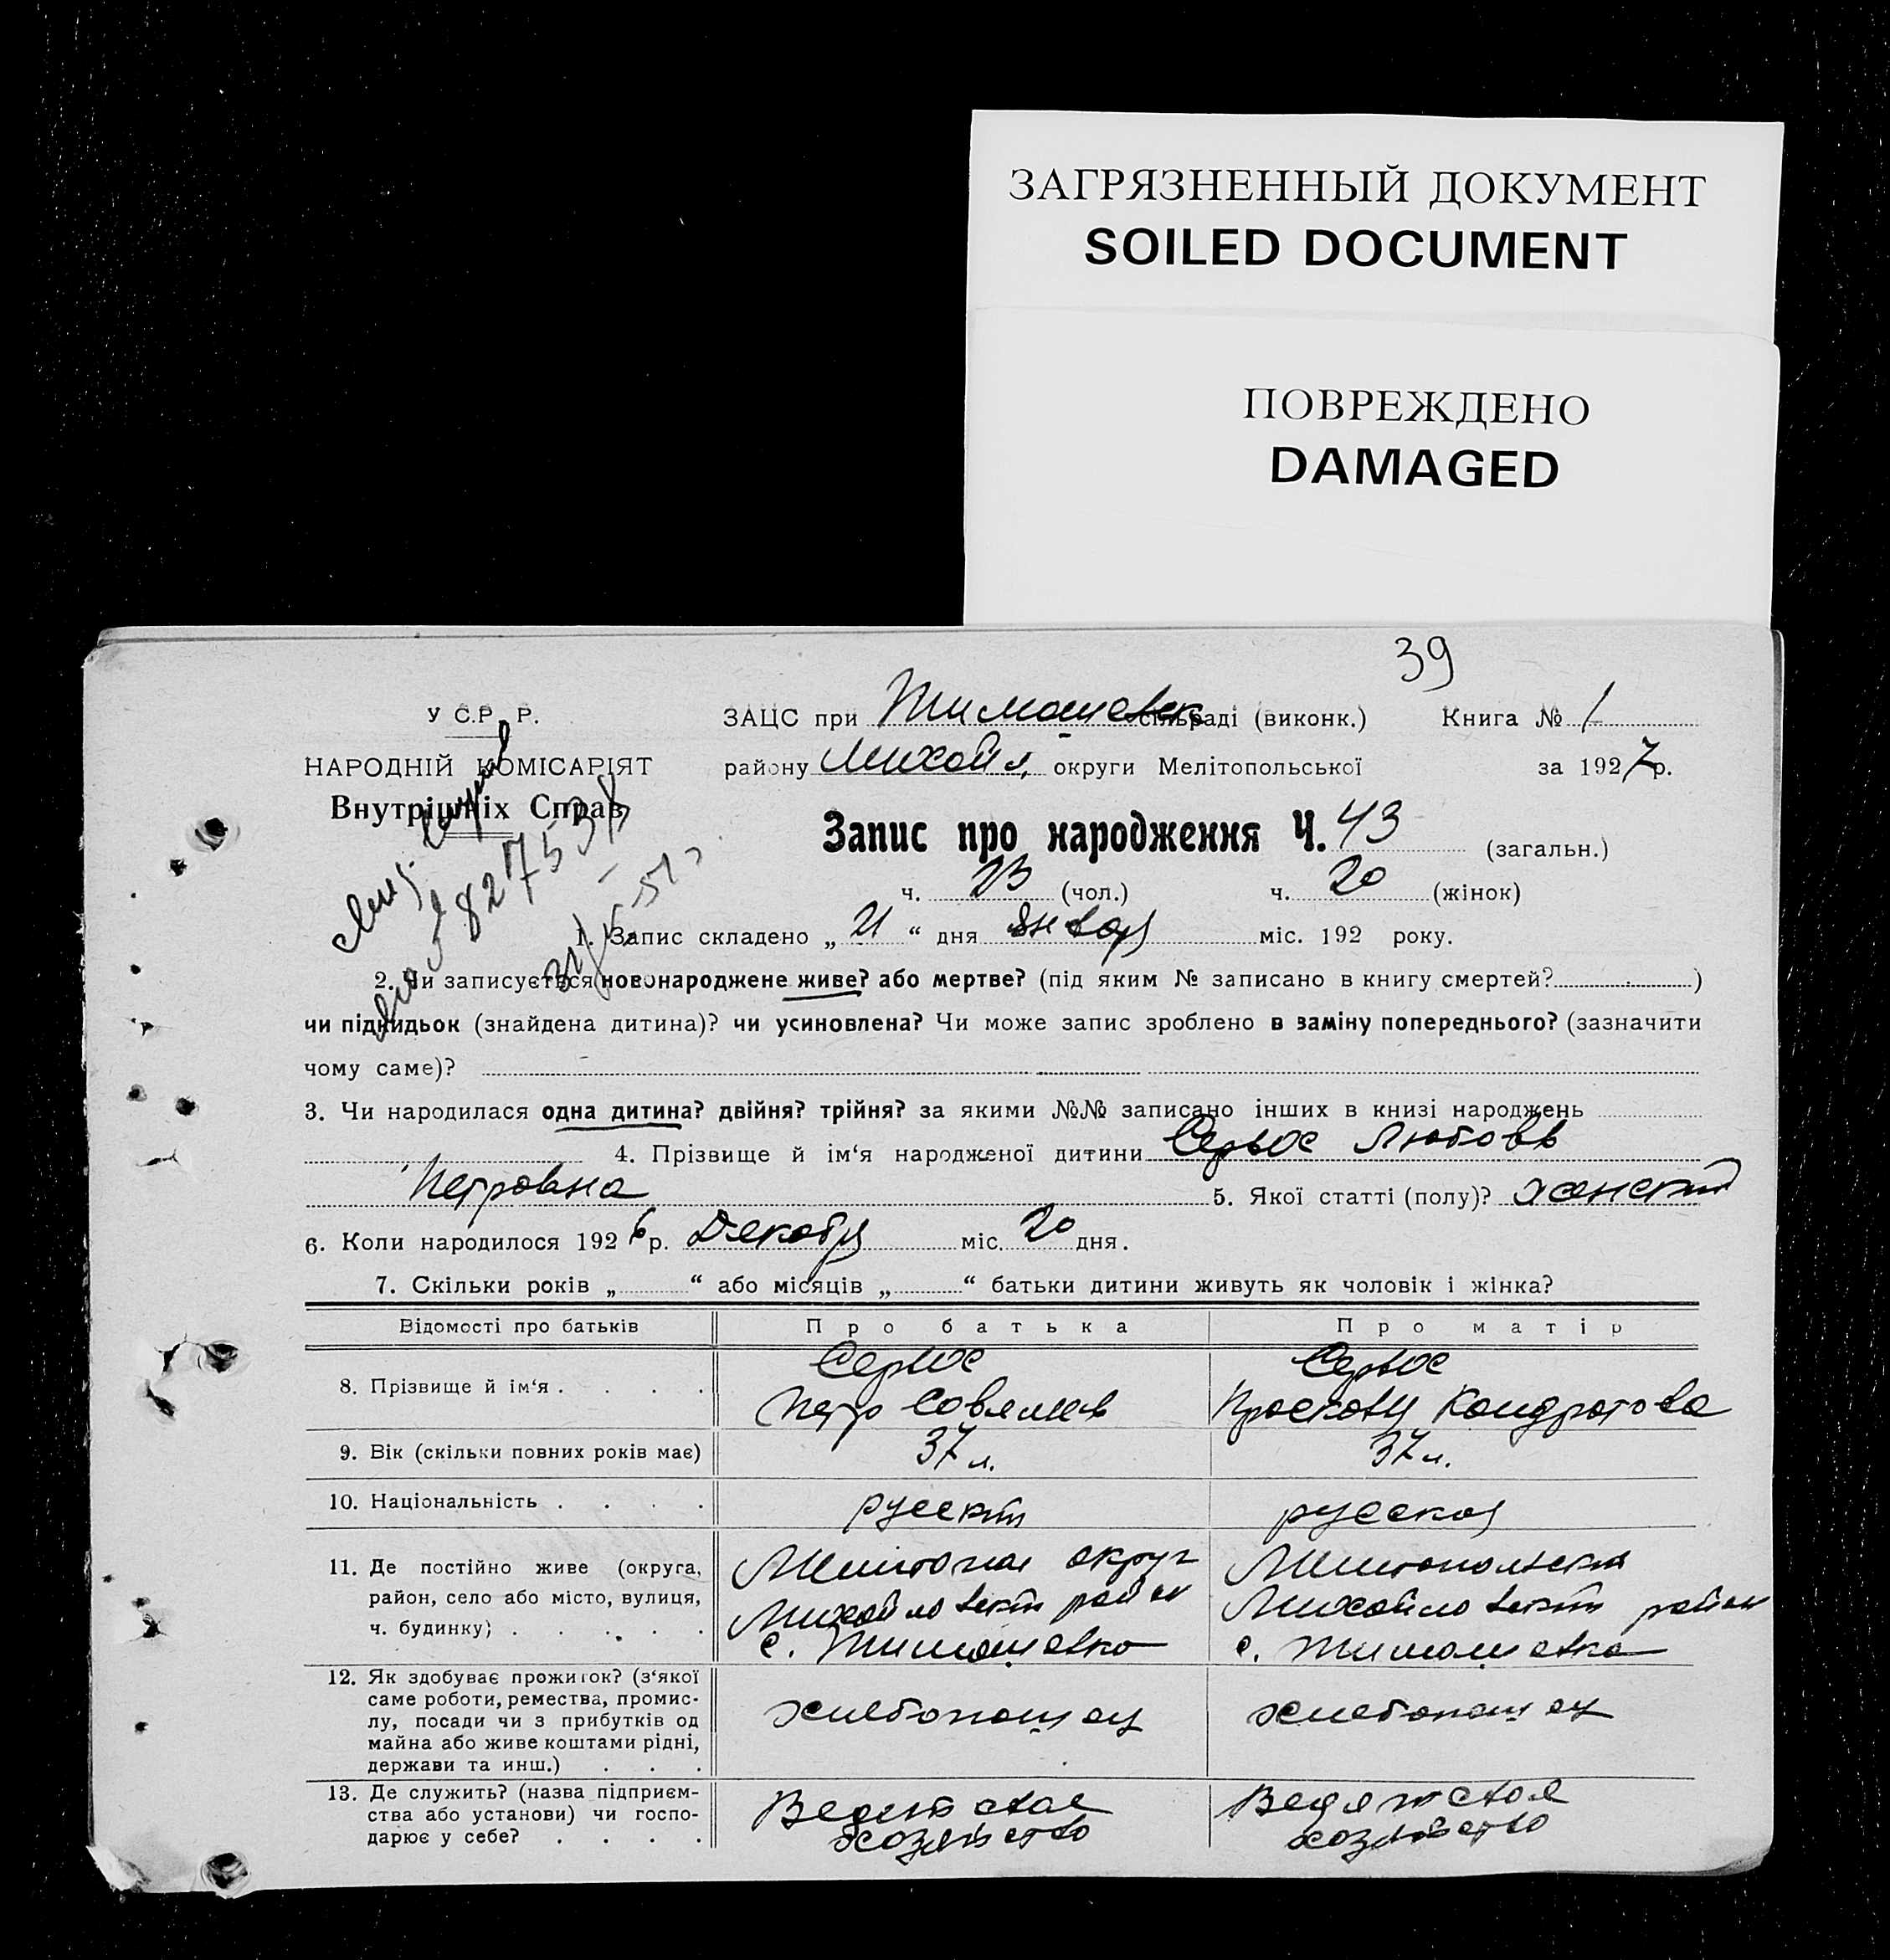 ЗАГРЯЗНЕННЫЙ ДОКУМЕНТ
SOILED DOCUMENT
ПОВРЕЖДЕНО
DAMAGED
39
У С.Р. Р.
НАРОДНІЙ КОМІСАРІЯТ
Внутрішніх Справ
ЗАЦС при Тимошевск сільраді (виконк.) Книга № 1
району Михайл. округи Мелітопольської за 1927 р.
Запис про народження Ч. 43 (загальн.)
ч. 23 (чол.) ч. 20 (жінок)
1. Запис складено „ 21 “ дня январ міс. 192 року.
2. Чи записується новонароджене живе? або мертве? (під яким № записано в книгу смертей? )
чи підкидьок (знайдена дитина)? чи усиновлена? Чи може запис зроблено в заміну попереднього? (зазначити
чому саме)?
3. Чи народилася одна дитина? двійня? трійня? за якими №№ записано інших в книзі народжень
4. Прізвище й ім‘я народженої дитини Любовь
Петровна 5. Якої статті (полу)? женский
6. Коли народилося 1926 р. Декабря міс. 20 дня.
7. Скільки років „ “ або місяців „ “ батьки дитини живуть як чоловік і жінка?
Відомості про батьків Про батька Про матір
8. Прізвище й ім‘я . . . .
Петр
Кондратова
9. Вік (скільки повних років має) 37 л. 37 л.
10. Національність . . . . русский русская
11. Де постійно живе (округа,
район, село або місто, вулиця,
ч. будинку) . . . . .
Мелитопол округ
Михайловский район
с. Тимошевка
Мелитопольский
Михайловский район
с. Тимошевка
12. Як здобуває прожиток? (з‘якої
саме роботи, ремества, промис-
лу, посади чи з прибутків од
майна або живе коштами рідні,
держави та инш.) . . .
хлебопашец хлебопашец
13. Де служить? (назва підприєм-
ства або установи) чи госпо-
дарює у себе? . . . .
Ведет свое
хозяйство
хозяйство